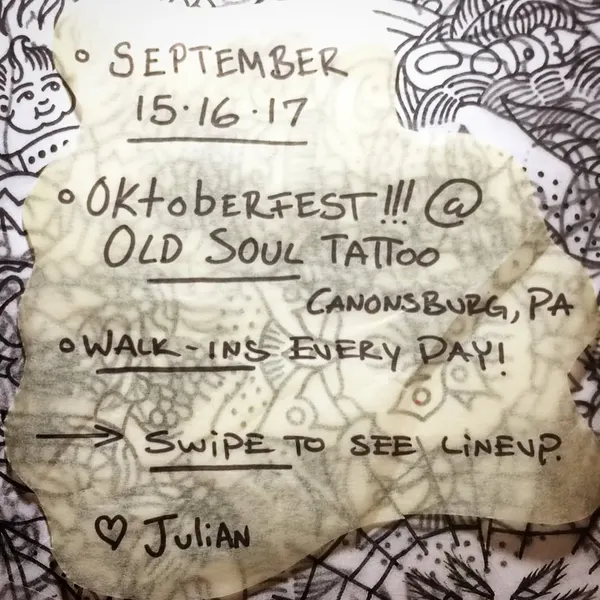 ° SEPTEMBER
15·16·17
° OKtobERFEST!!! @
OLD SOUL TATTOO
CANONSBURG, PA
° WALK-INS EVERY DAY!
→ SWIPE TO SEE LINEUP.
♡ JULIAN